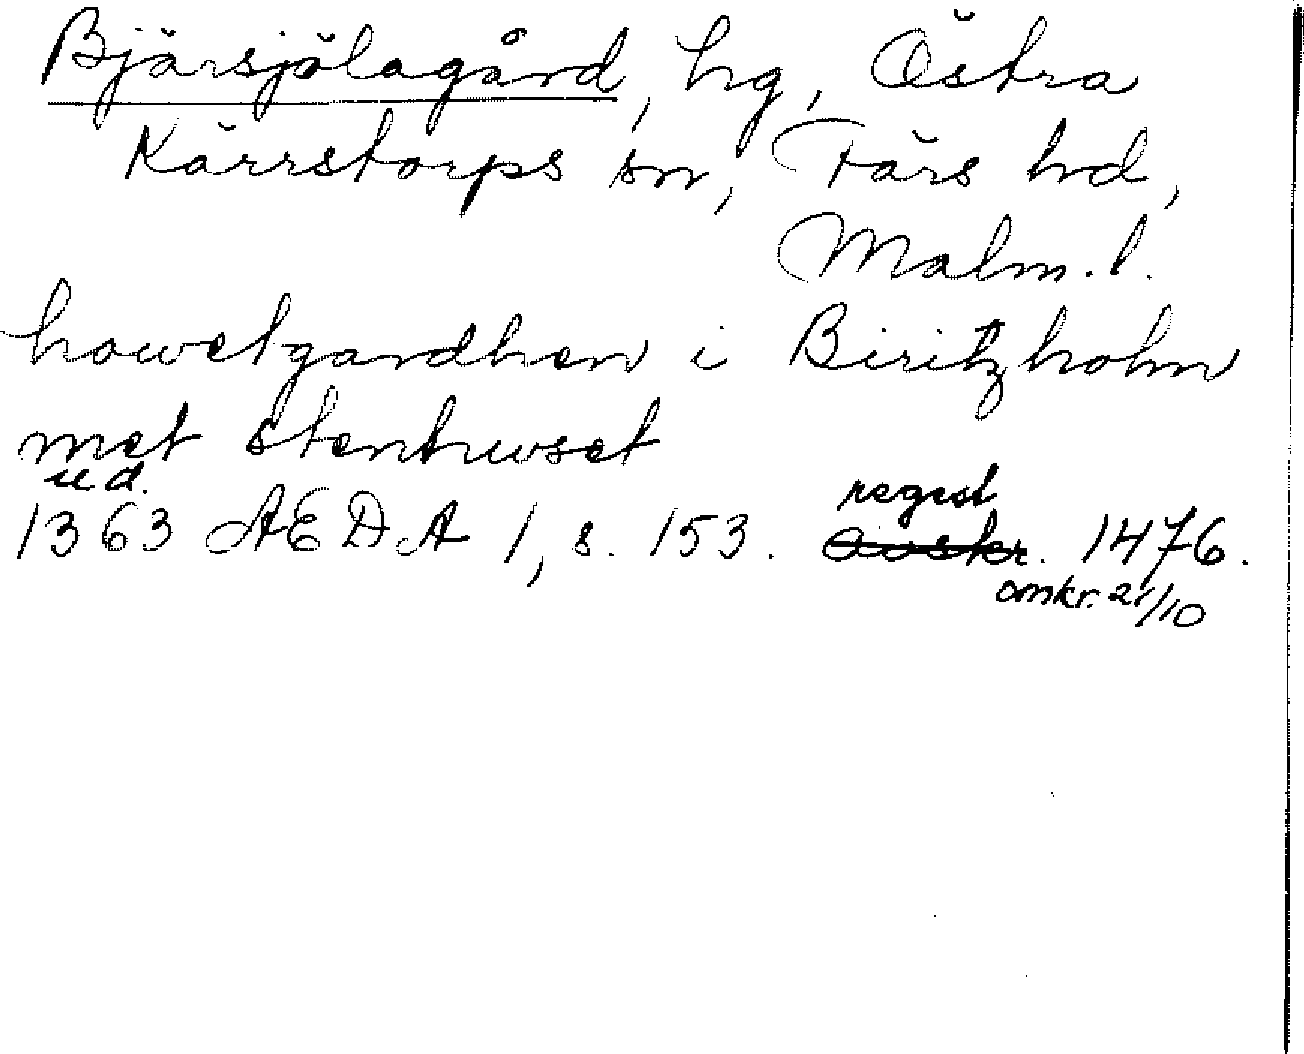 Bjärsjölagård, hg, Östra
Kärrstorps sn, Färs hd,
Malm. l.
howetgardhen i Biritzholm
met stenhwset
u.d.
regest
1363 ÆDA 1, s. 153. avskr. 1476.
omkr. 21/10